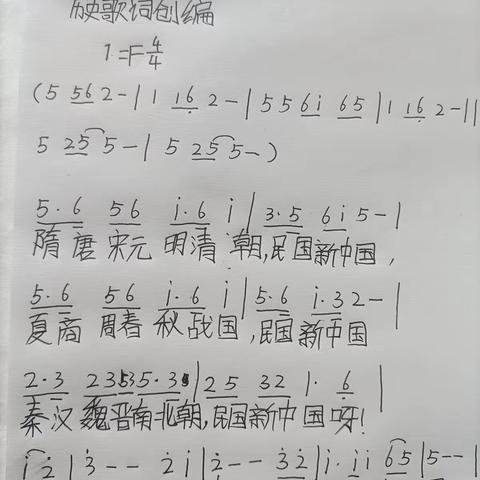 历史歌词创编
1=F 4/4
(5 56 2-|1 16 2-|5 5 6i 65|1 16 2-||
5 25 5-|5 25 5-)
5·6 56 i·6 i|3·5 6i 5-|
隋唐宋元明清朝,民国新中国,
5·6 56 i·6 i|5·6 i·3 2-|
夏商周春秋战国,民国新中国
2·3 235·3|25 32 1·6|
秦汉魏晋南北朝,民国新中国呀!
i 2|3-- 2 i|2-- 32|i·ii 65|5--|